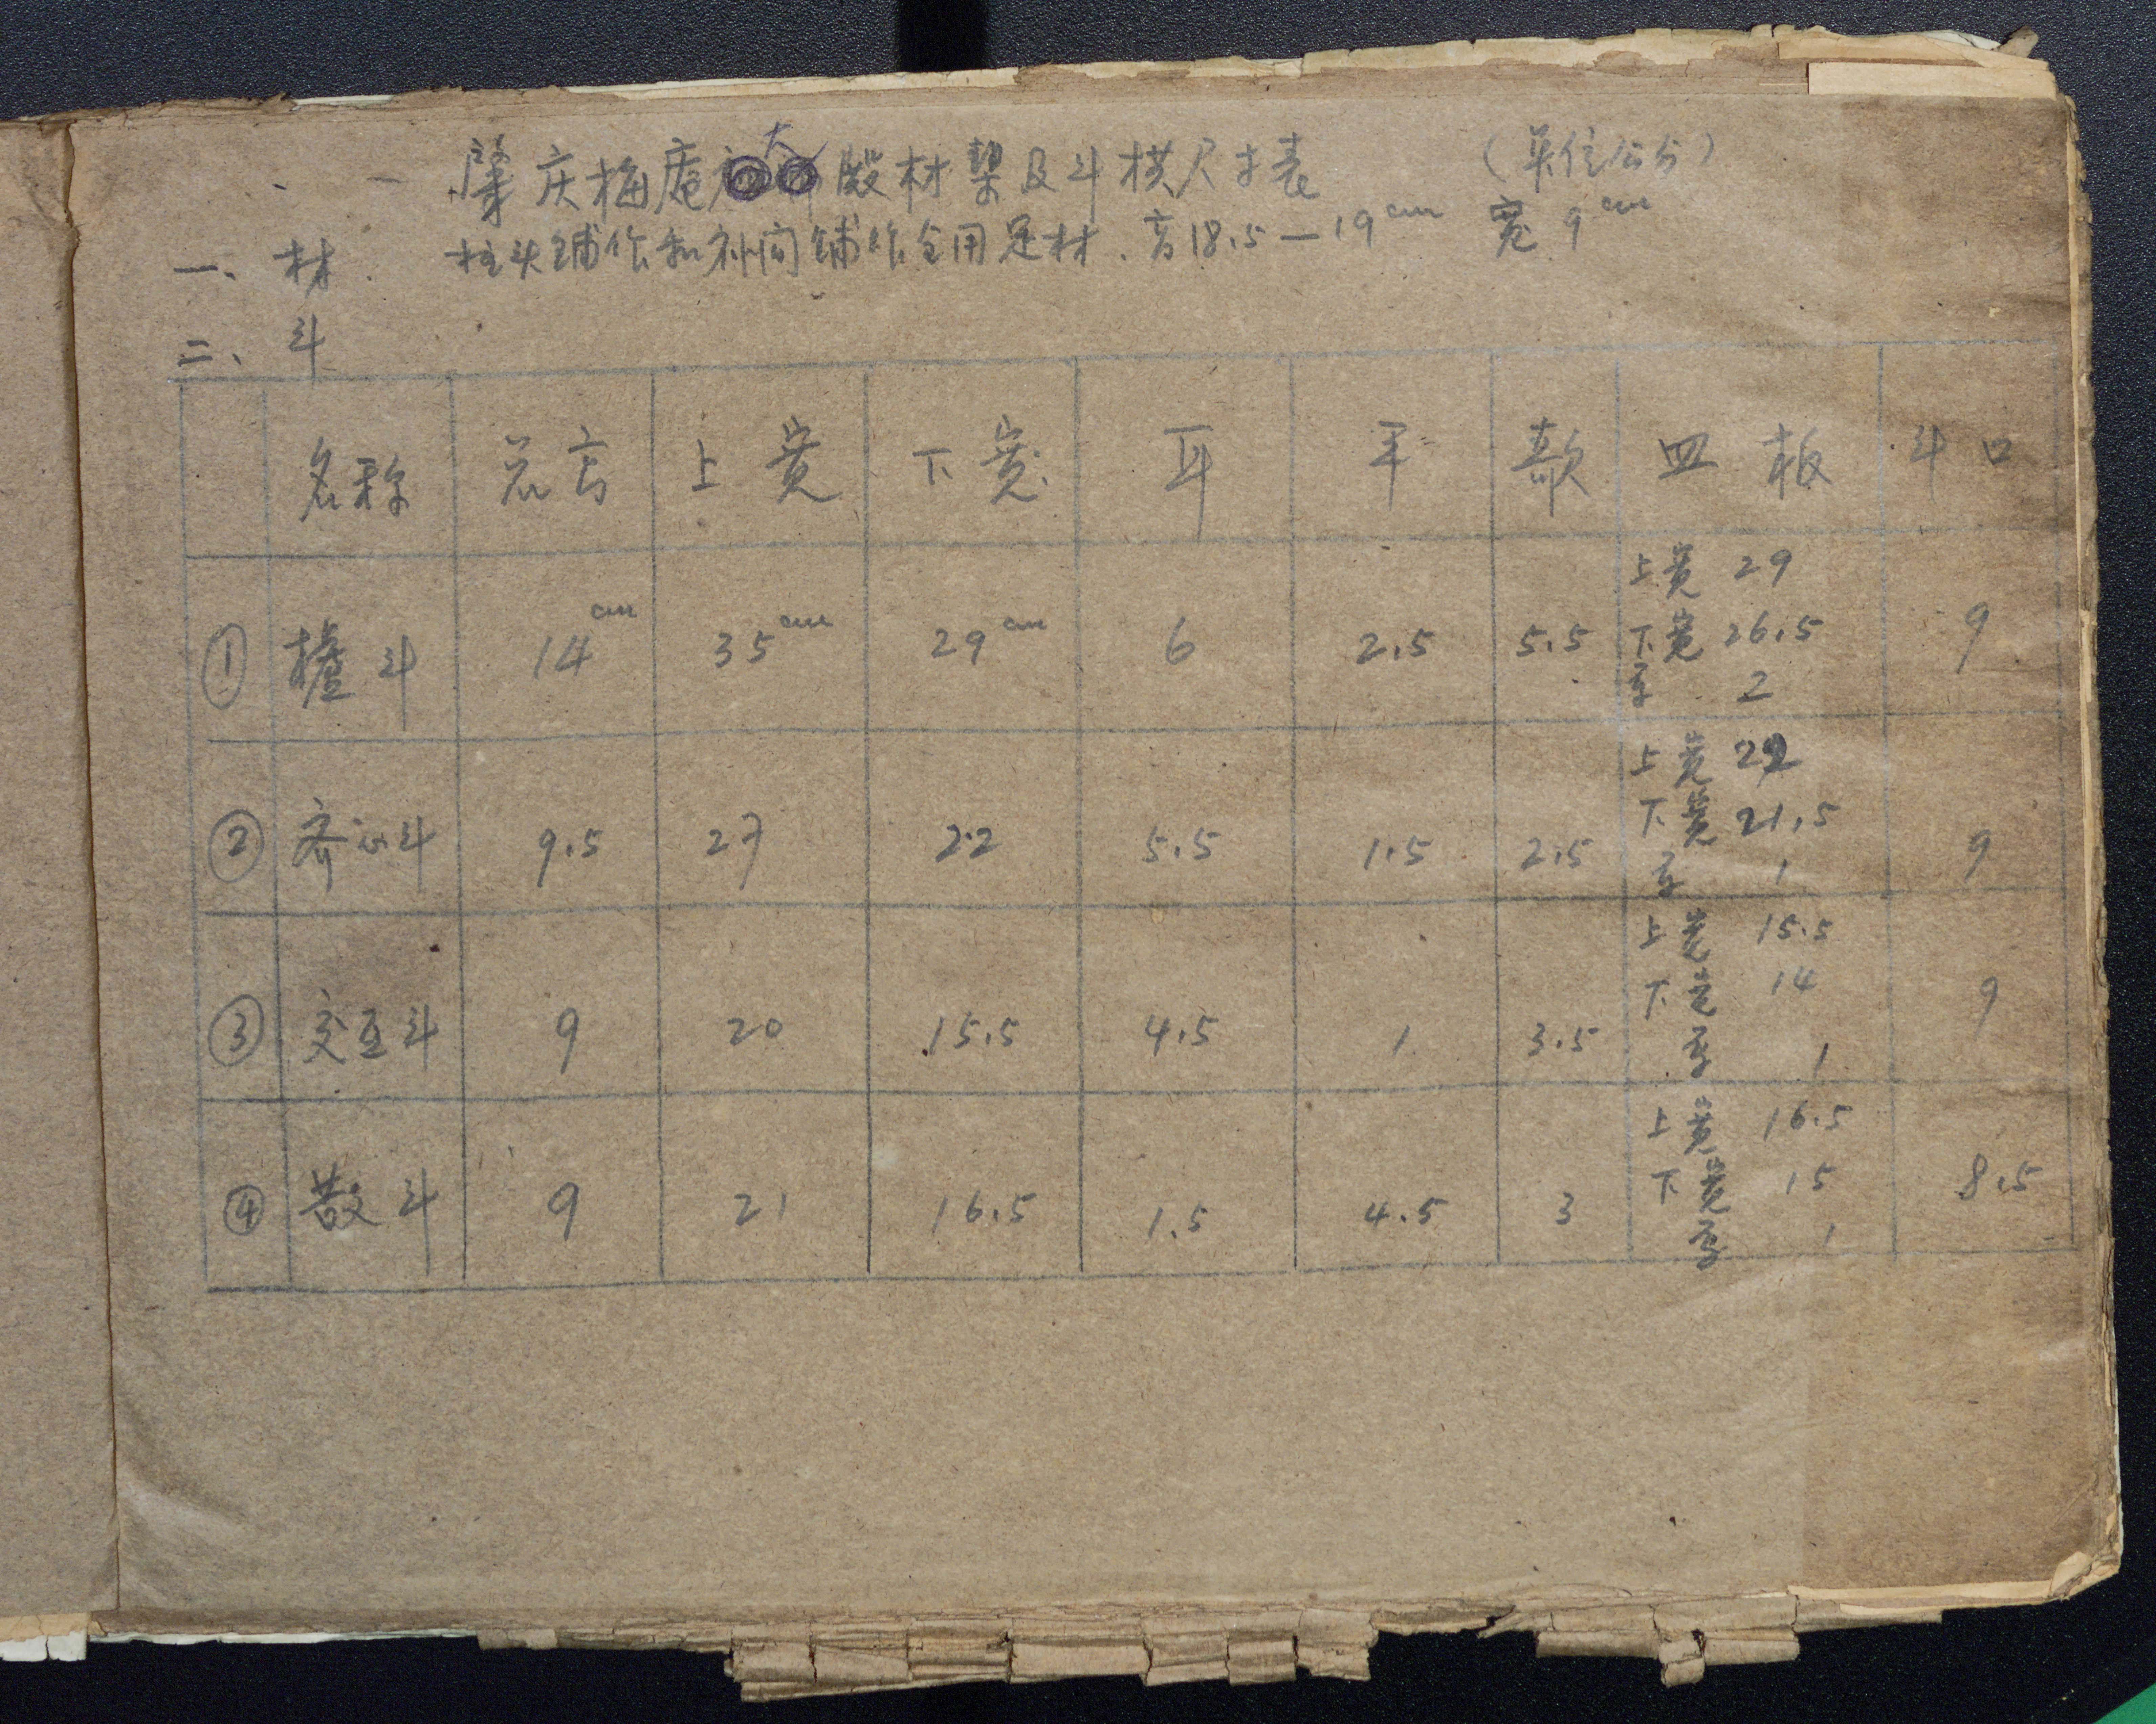 肇庆梅庵大殿材栔及斗栱尺寸表 (单位公分)
一、材. 柱头铺作和补间铺作全用足材、高18.5—19cm 宽9cm
二、斗
名称 总高 上宽 下宽 耳 平 欹 皿板 斗口
① 栌斗 14cm 35cm 29cm 6 2.5 5.5 上宽 29 下宽 26.5 高 2 9
② 齐心斗 9.5 27 22 5.5 1.5 2.5 上宽 22 下宽 21.5 高 1 9
③ 交互斗 9 20 15.5 4.5 1 3.5 上宽 15.5 下宽 14 高 1 9
④ 散斗 9 21 16.5 1.5 4.5 3 上宽 16.5 下宽 15 高 1 8.5